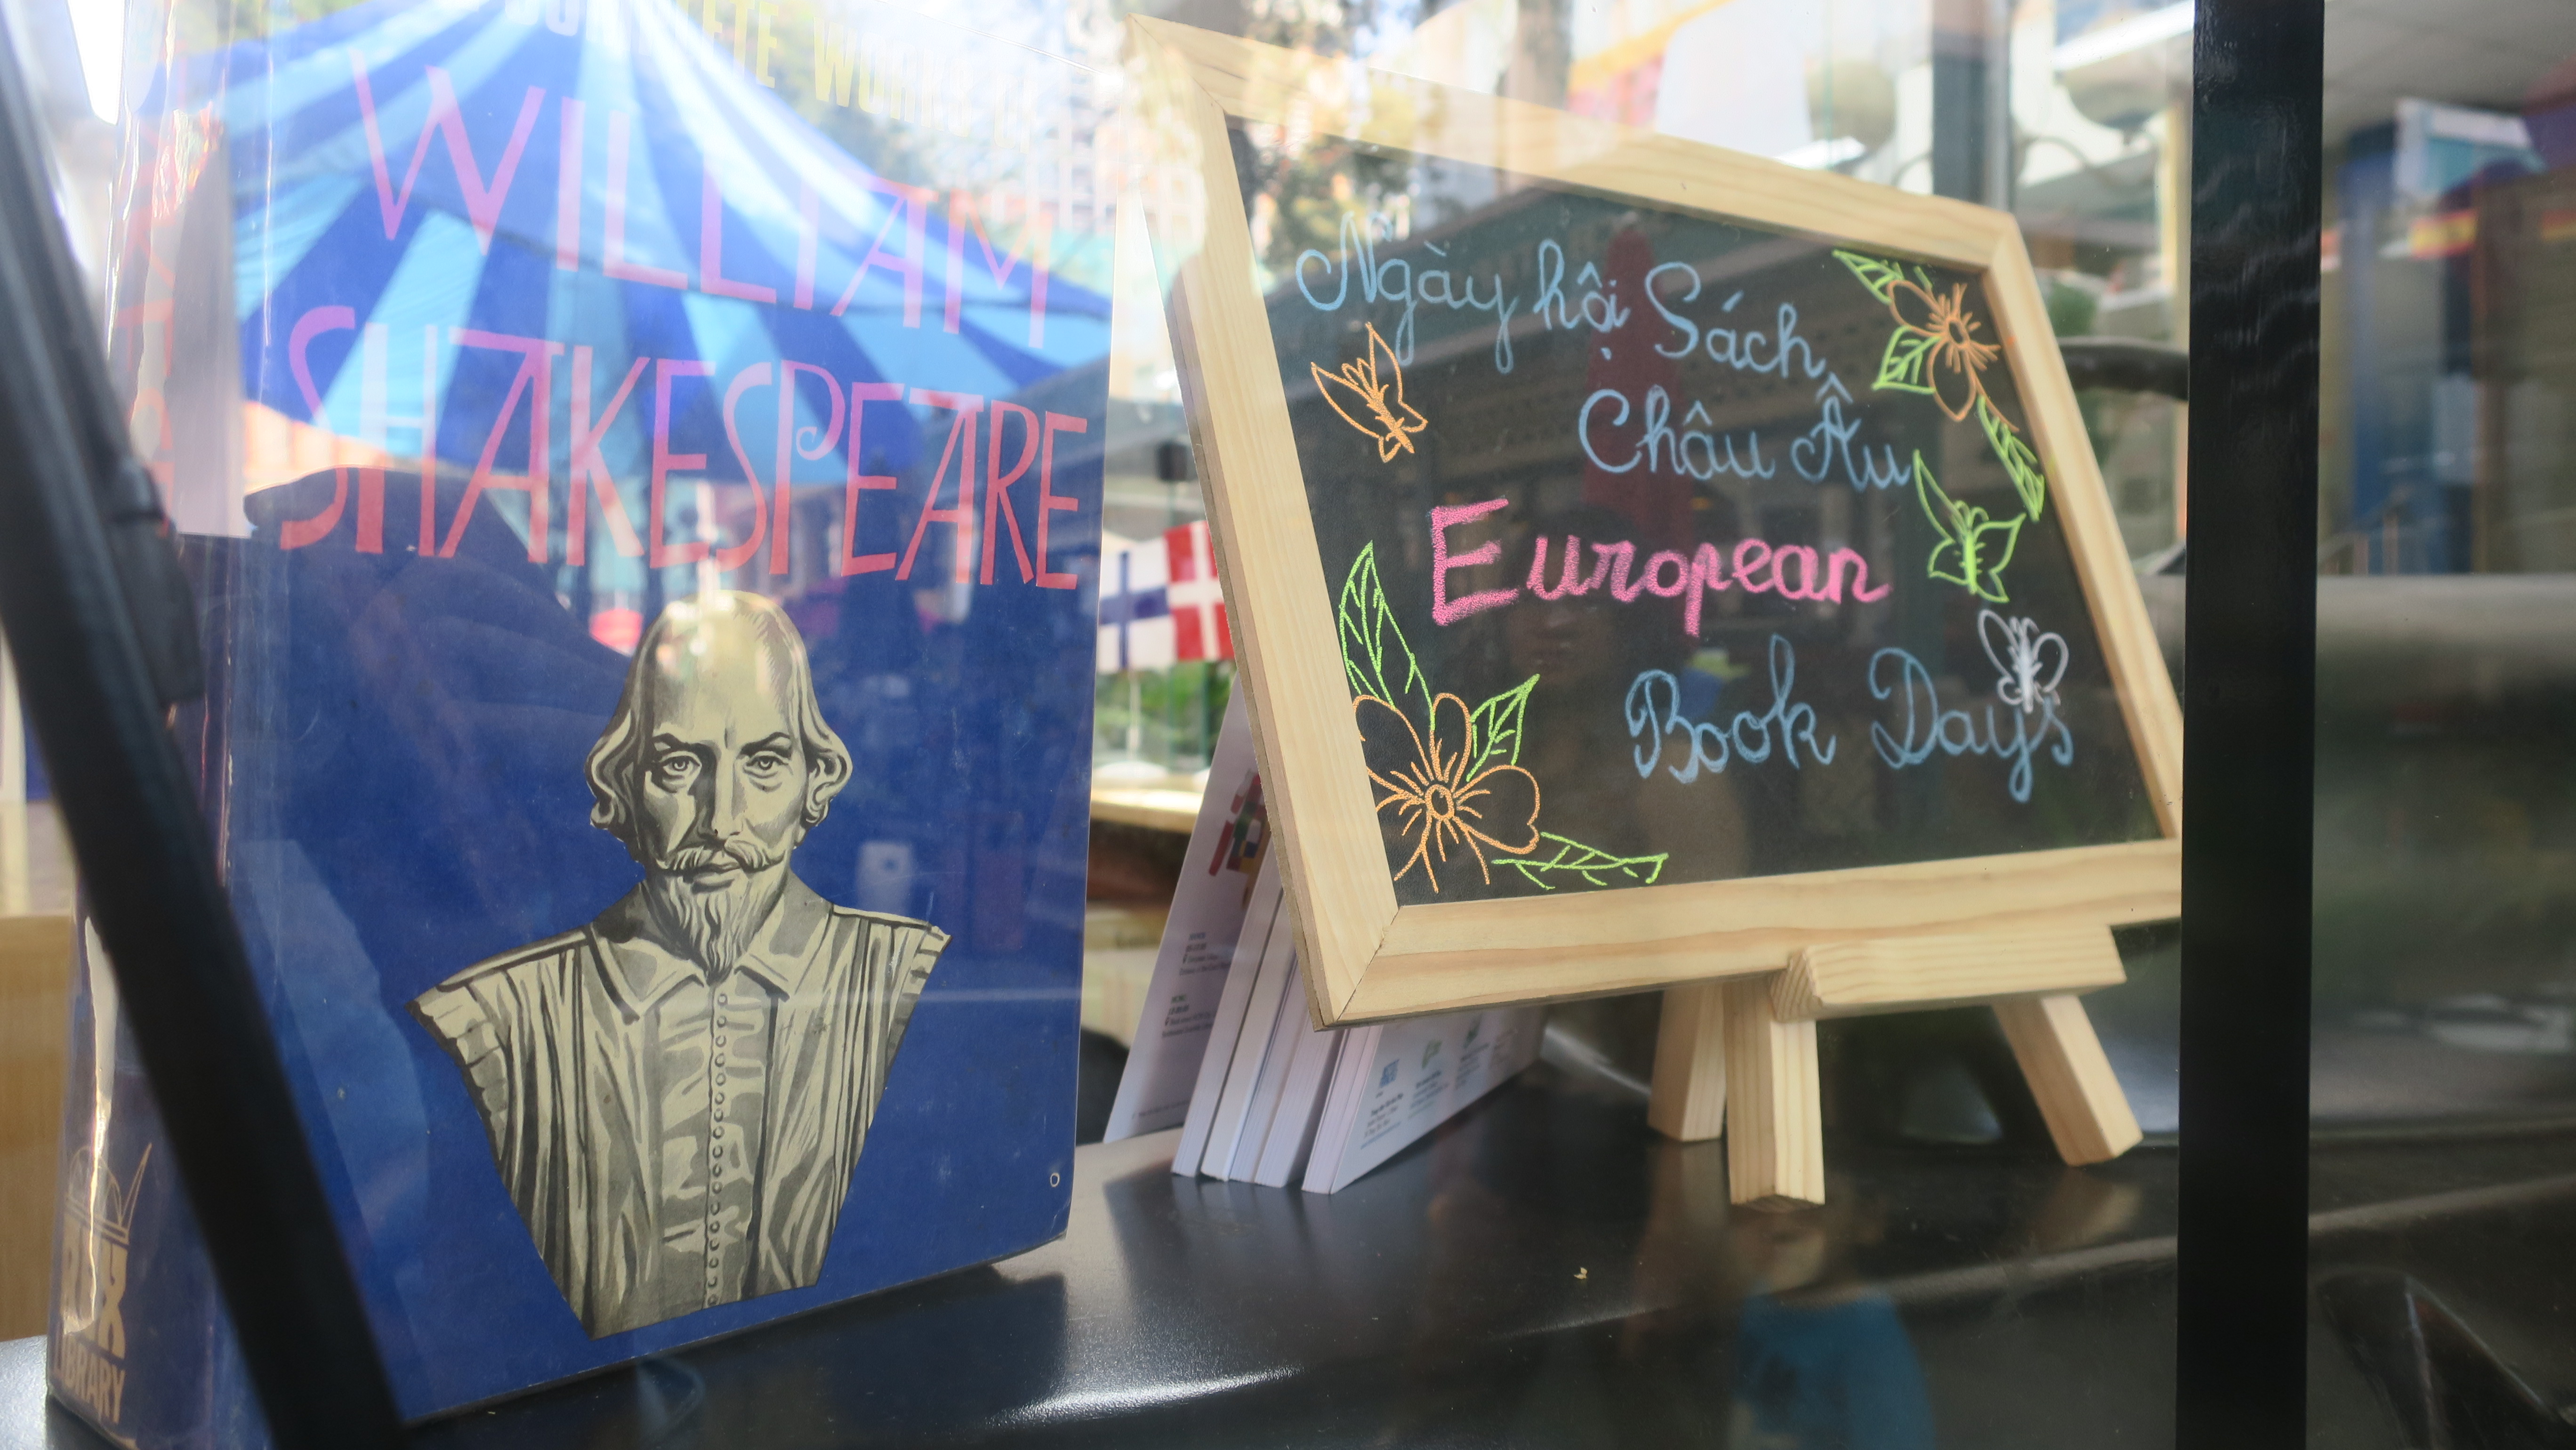 COMPLETE WORKS OF
WILLIAM
SHAKESPEARE
REX
LIBRARY
Ngày hội Sách
Châu Âu
European
Book Days